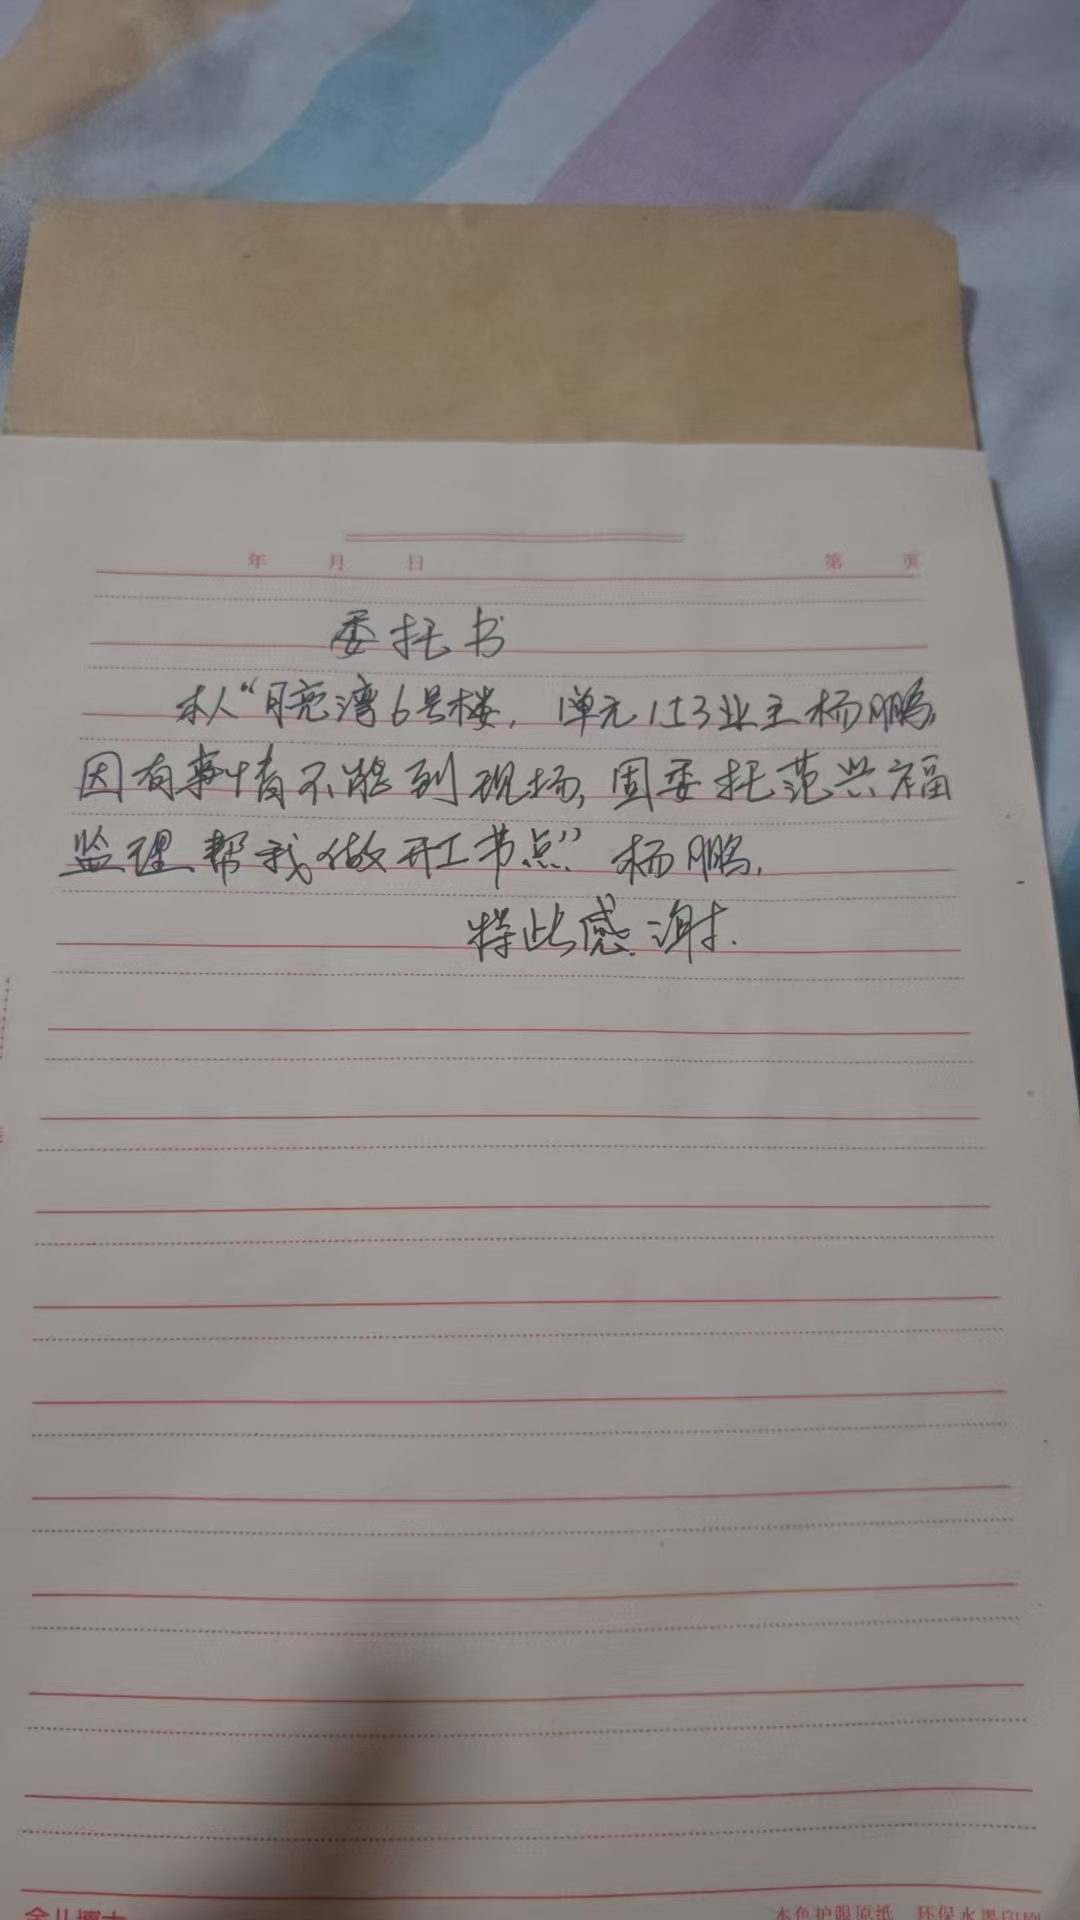 年 月 日 第 页
委托书
本人“月亮湾6号楼，1单元1153业主杨鹏，
因有事情不能到现场，固委托范兴福
监理帮我做开工节点” 杨鹏，
特此感谢.
本色护眼原纸 环保水墨印刷